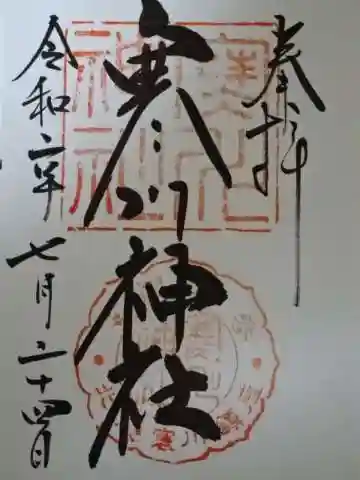 奉拝
寒川神社
令和二年
七月二十四日